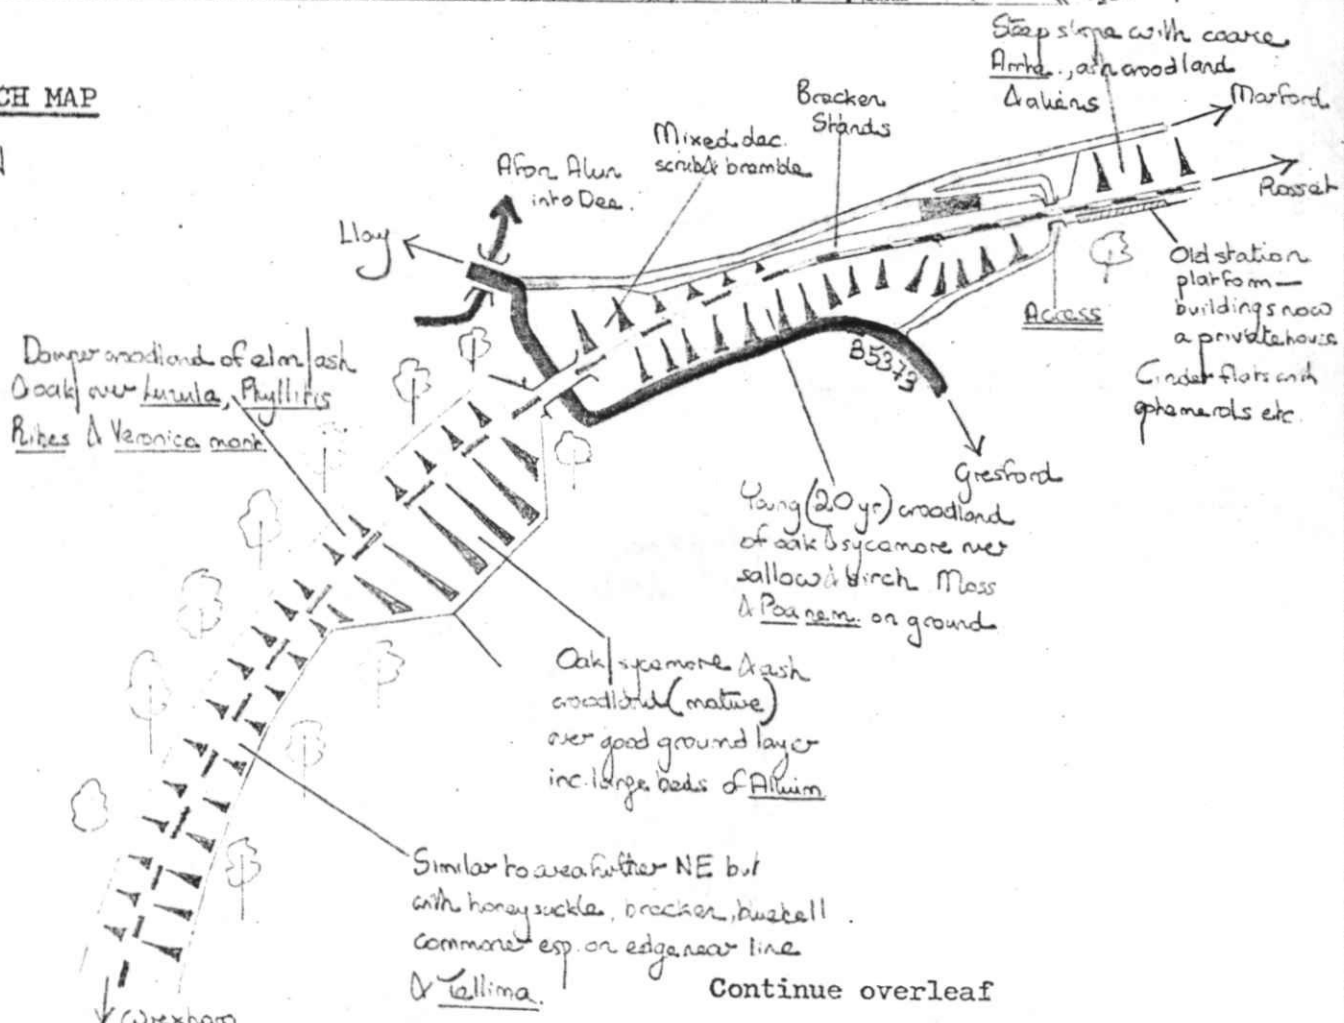 CH MAP
Steep slope with coarse
Arrhe., ash woodland
& aliens
Marford
Rosset
Bracken
Stands
Mixed dec.
scrub & bramble
Afon Alun
into Dee.
Llay
Old station
platform —
buildings now
a private house
Cinder flats with
ephemerals etc.
Access
B5373
Gresford
Damper woodland of elm/ash
& oak over Luzula, Phyllitis
Ribes & Veronica mont
Young (20 yr) woodland
of oak & sycamore over
sallow & birch Moss
& Poa nem. on ground
Oak/sycamore & ash
woodland (mature)
over good ground layer
inc. large beds of Allium
Similar to area further NE but
with honeysuckle, bracken, bluebell
commoner esp. on edge near line
& Tellima.
Continue overleaf
Wrexham